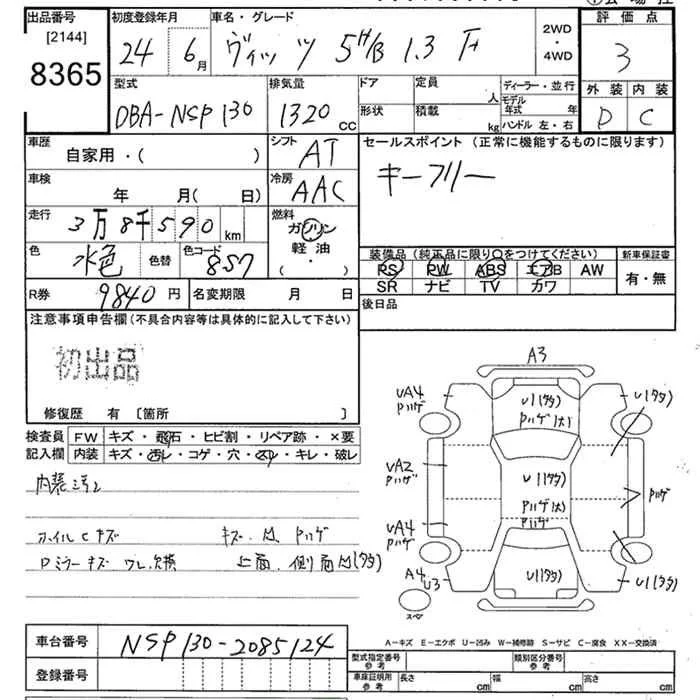 出品番号 初度登録年月 車名・グレード 評価点
[2144] 24 6月 ヴィッツ 5H/B 1.3 F 2WD・4WD 3
8365
型式 排気量 ドア 定員 ディーラー・並行 外装 内装
DBA-NSP130 1320cc 形状 積載 人 kg モデル年式 年 ハンドル 左・右 D C
車歴 シフト セールスポイント (正常に機能するものに限ります)
自家用・( ) AT
車検 冷房 キーフリー
年 月( 日) AAC
走行 燃料
3万8千590km ガソリン
色 色替 色コード 軽油
水色 857 ( ・ )
装備品 (純正品に限り○をつけてください) 新車保証書
PS PW ABS エアB AW 有・無
SR ナビ TV カワ
R券 9840円 名変期限 月 日 後日品
注意事項申告欄 (不具合内容等は具体的に記入して下さい)
初出品
修復歴 有 [箇所 ]
検査員 FW キズ・飛石・ヒビ割・リペア跡・×要
記入欄 内装 キズ・汚レ・コゲ・穴・スレ・キレ・破レ
ホイルCキズ キズ・凹 Pハゲ
Dミラーキズ ワレ 交換 上面、側面凹(タタ)
A3
UA4 U1(タタ) U1(タタ)
Pハゲ Pハゲ(大)
UA2 U1(タタ) Pハゲ
Pハゲ Pハゲ(大)
UA4 Pハゲ
Pハゲ
A4 U3 U1(タタ) U1(タタ)
スペア
A-キズ E-エクボ U-凹み W-補修跡 S-サビ C-腐食 XX-交換済
車台番号 NSP130-2085124
登録番号
型式指定番号 参考 類別区分番号 参考
車庫証明用 参考 長さ cm 幅 cm 高さ cm